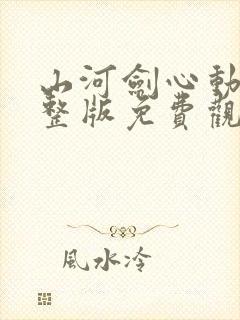 山河劍心動
整版免費觀
風水冷